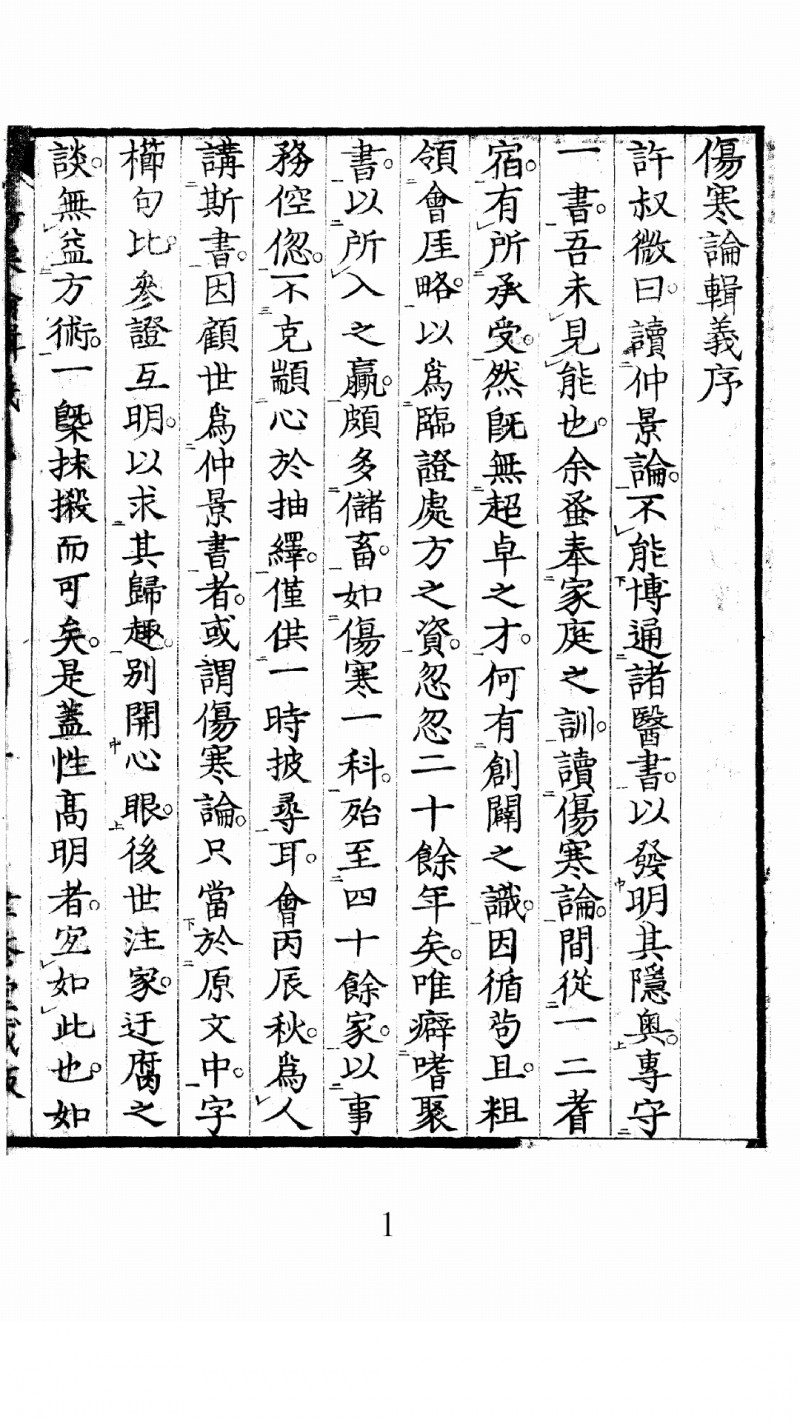 傷寒論輯義序
許叔微曰。讀仲景論。不能博通諸醫書。以發明其隱奧。專守
一書。吾未見能也。余蚤奉家庭之訓。讀傷寒論。間從一二耆
宿。有所承受。然旣無超卓之才。何有創闢之識。因循苟且。粗
領會厓略。以爲臨證處方之資。忽忽二十餘年矣。唯癖嗜聚
書。以所入之贏。頗多儲畜。如傷寒一科。殆至四十餘家。以事
務倥偬。不克顓心於抽繹。僅供一時披尋耳。會丙辰秋。爲人
講斯書。因顧世爲仲景書者。或謂傷寒論。只當於原文中。字
櫛句比。參證互明。以求其歸趣。別開心眼。後世注家。迂腐之
談。無益方術。一槩抹摋而可矣。是蓋性高明者。宐如此也。如
1